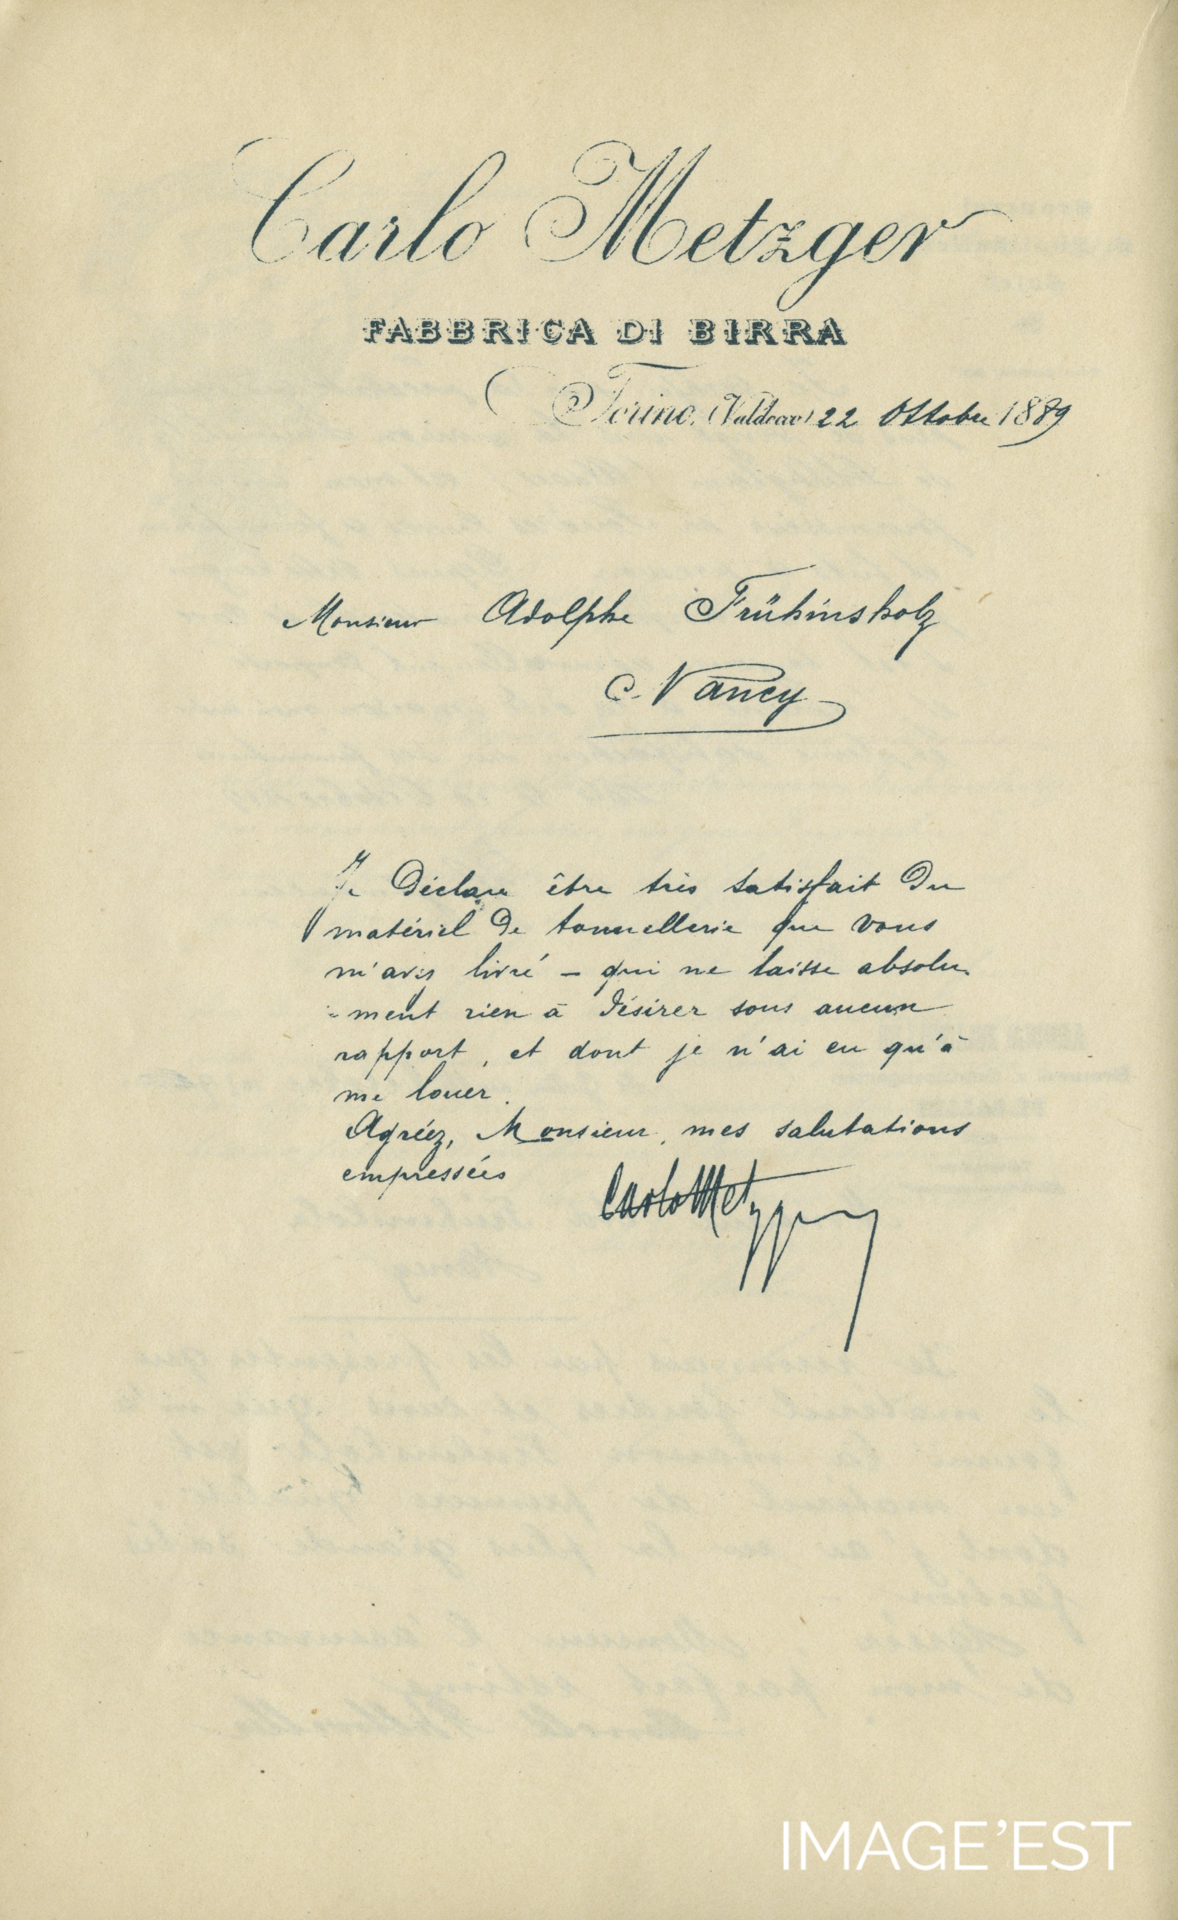 Carlo Metzger
FABBRICA DI BIRRA
Torino, (Valdocco) 22 Ottobre 1889
Monsieur Adolphe Frühinsholz
à Nancy
Je déclare être très satisfait du
matériel de tonnellerie que vous
m'avez livré – qui ne laisse absolu-
-ment rien à désirer sous aucun
rapport, et dont je n'ai eu qu'à
me louer.
Agréez, Monsieur, mes salutations
empressées
Carlo Metzger
IMAGE'EST